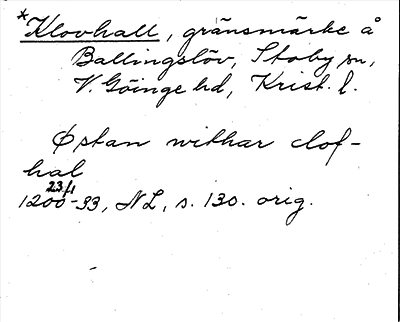 *Klovhall, gränsmärke å
Ballingslöv, Stoby sn,
V. Göinge hd, Krist. l.
Østan withar clof-
hal
23/1
1200-33, NL, s. 130. orig.